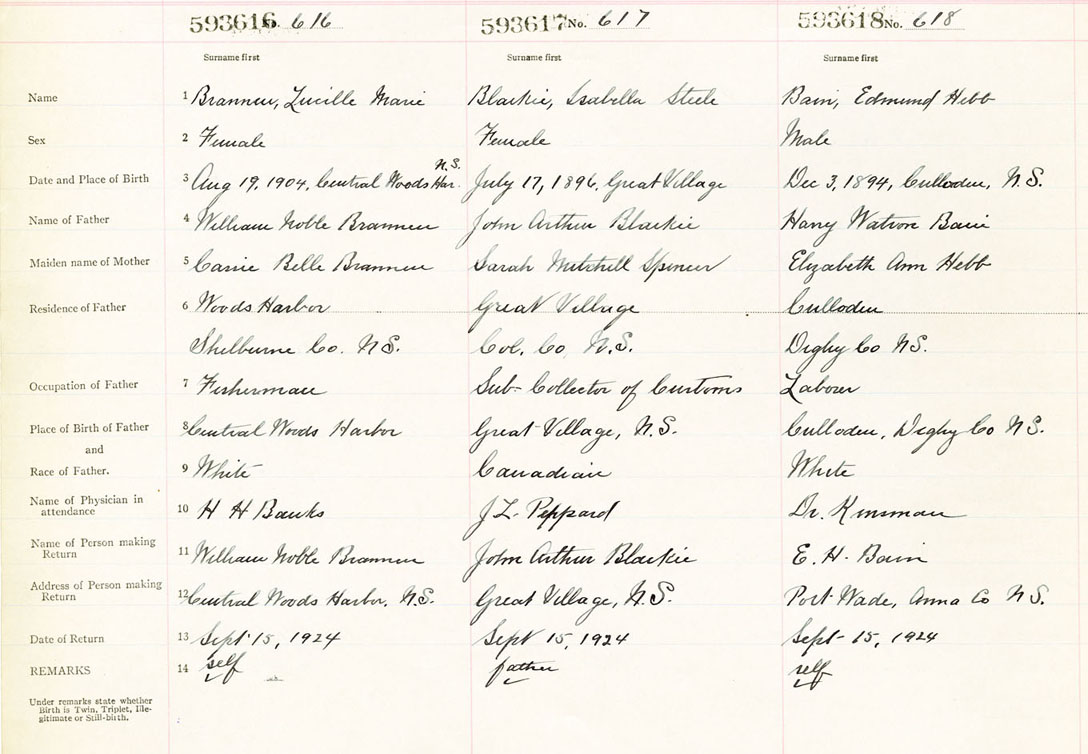 593616 No. 616 593617 No. 617 593618 No. 618
Surname first Surname first Surname first
Name 1 Brannen, Lucille Marie Blaikie, Isabella Steele Bain, Edmund Hebb
Sex 2 Female Female Male
N.S.
Date and Place of Birth 3 Aug 19, 1904, Central Woods Har. July 17, 1896, Great Village Dec 3, 1894, Culloden, N.S.
Name of Father 4 William Noble Brannen John Arthur Blaikie Harry Watson Bain
Maiden name of Mother 5 Carrie Belle Brannen Sarah Mitchell Spencer Elizabeth Ann Hebb
Residence of Father 6 Woods Harbor Great Village Culloden
Shelburne Co. N S. Col. Co. N.S. Digby Co N S.
Occupation of Father 7 Fisherman Sub-Collector of Customs Laborer
Place of Birth of Father 8 Central Woods Harbor Great Village, N.S. Culloden, Digby Co N S.
and
Race of Father. 9 White Canadian White
Name of Physician in
attendance 10 H H Banks J L. Peppard Dr. Kinsman
Name of Person making
Return 11 William Noble Brannen John Arthur Blaikie E. H. Bain
Address of Person making
Return 12 Central Woods Harbor, N.S. Great Village, N.S. Port Wade, Anna Co N S.
Date of Return 13 Sept 15, 1924 Sept 15, 1924 Sept 15, 1924
REMARKS 14 self father self
Under remarks state whether
Birth is Twin, Triplet, Ille-
gitimate or Still-birth.